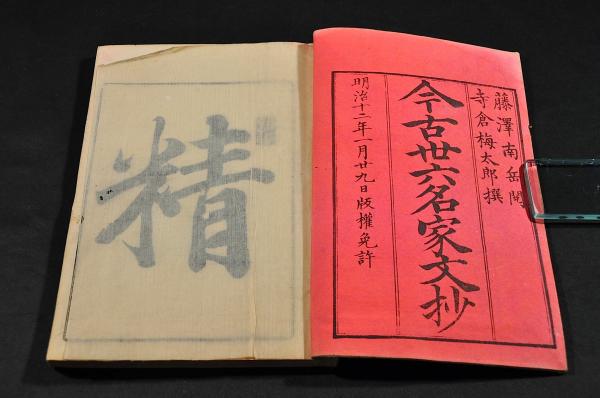 藤澤南岳閱
寺倉梅太郎撰
今古丗六名家文抄
明治十二年一月廿九日版權免許
精